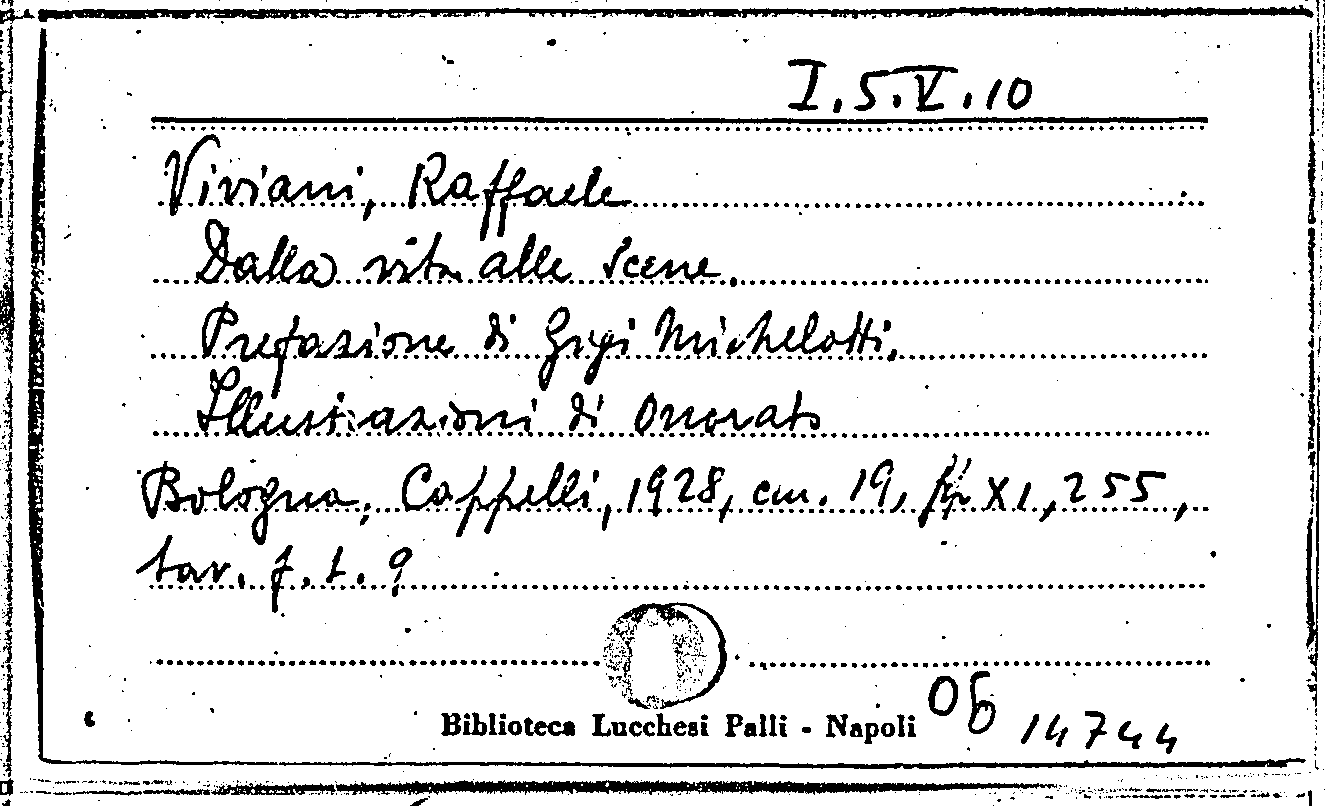 I.5.V.10
Viviani, Raffaele
Dalla vita alle scene.
Prefazione di Gigi Michelotti.
Illustrazioni di Onorato
Bologna, Cappelli, 1928, cm. 19, pp. XI, 255,
tav. f. t. 9
Biblioteca Lucchesi Palli - Napoli
06 14744